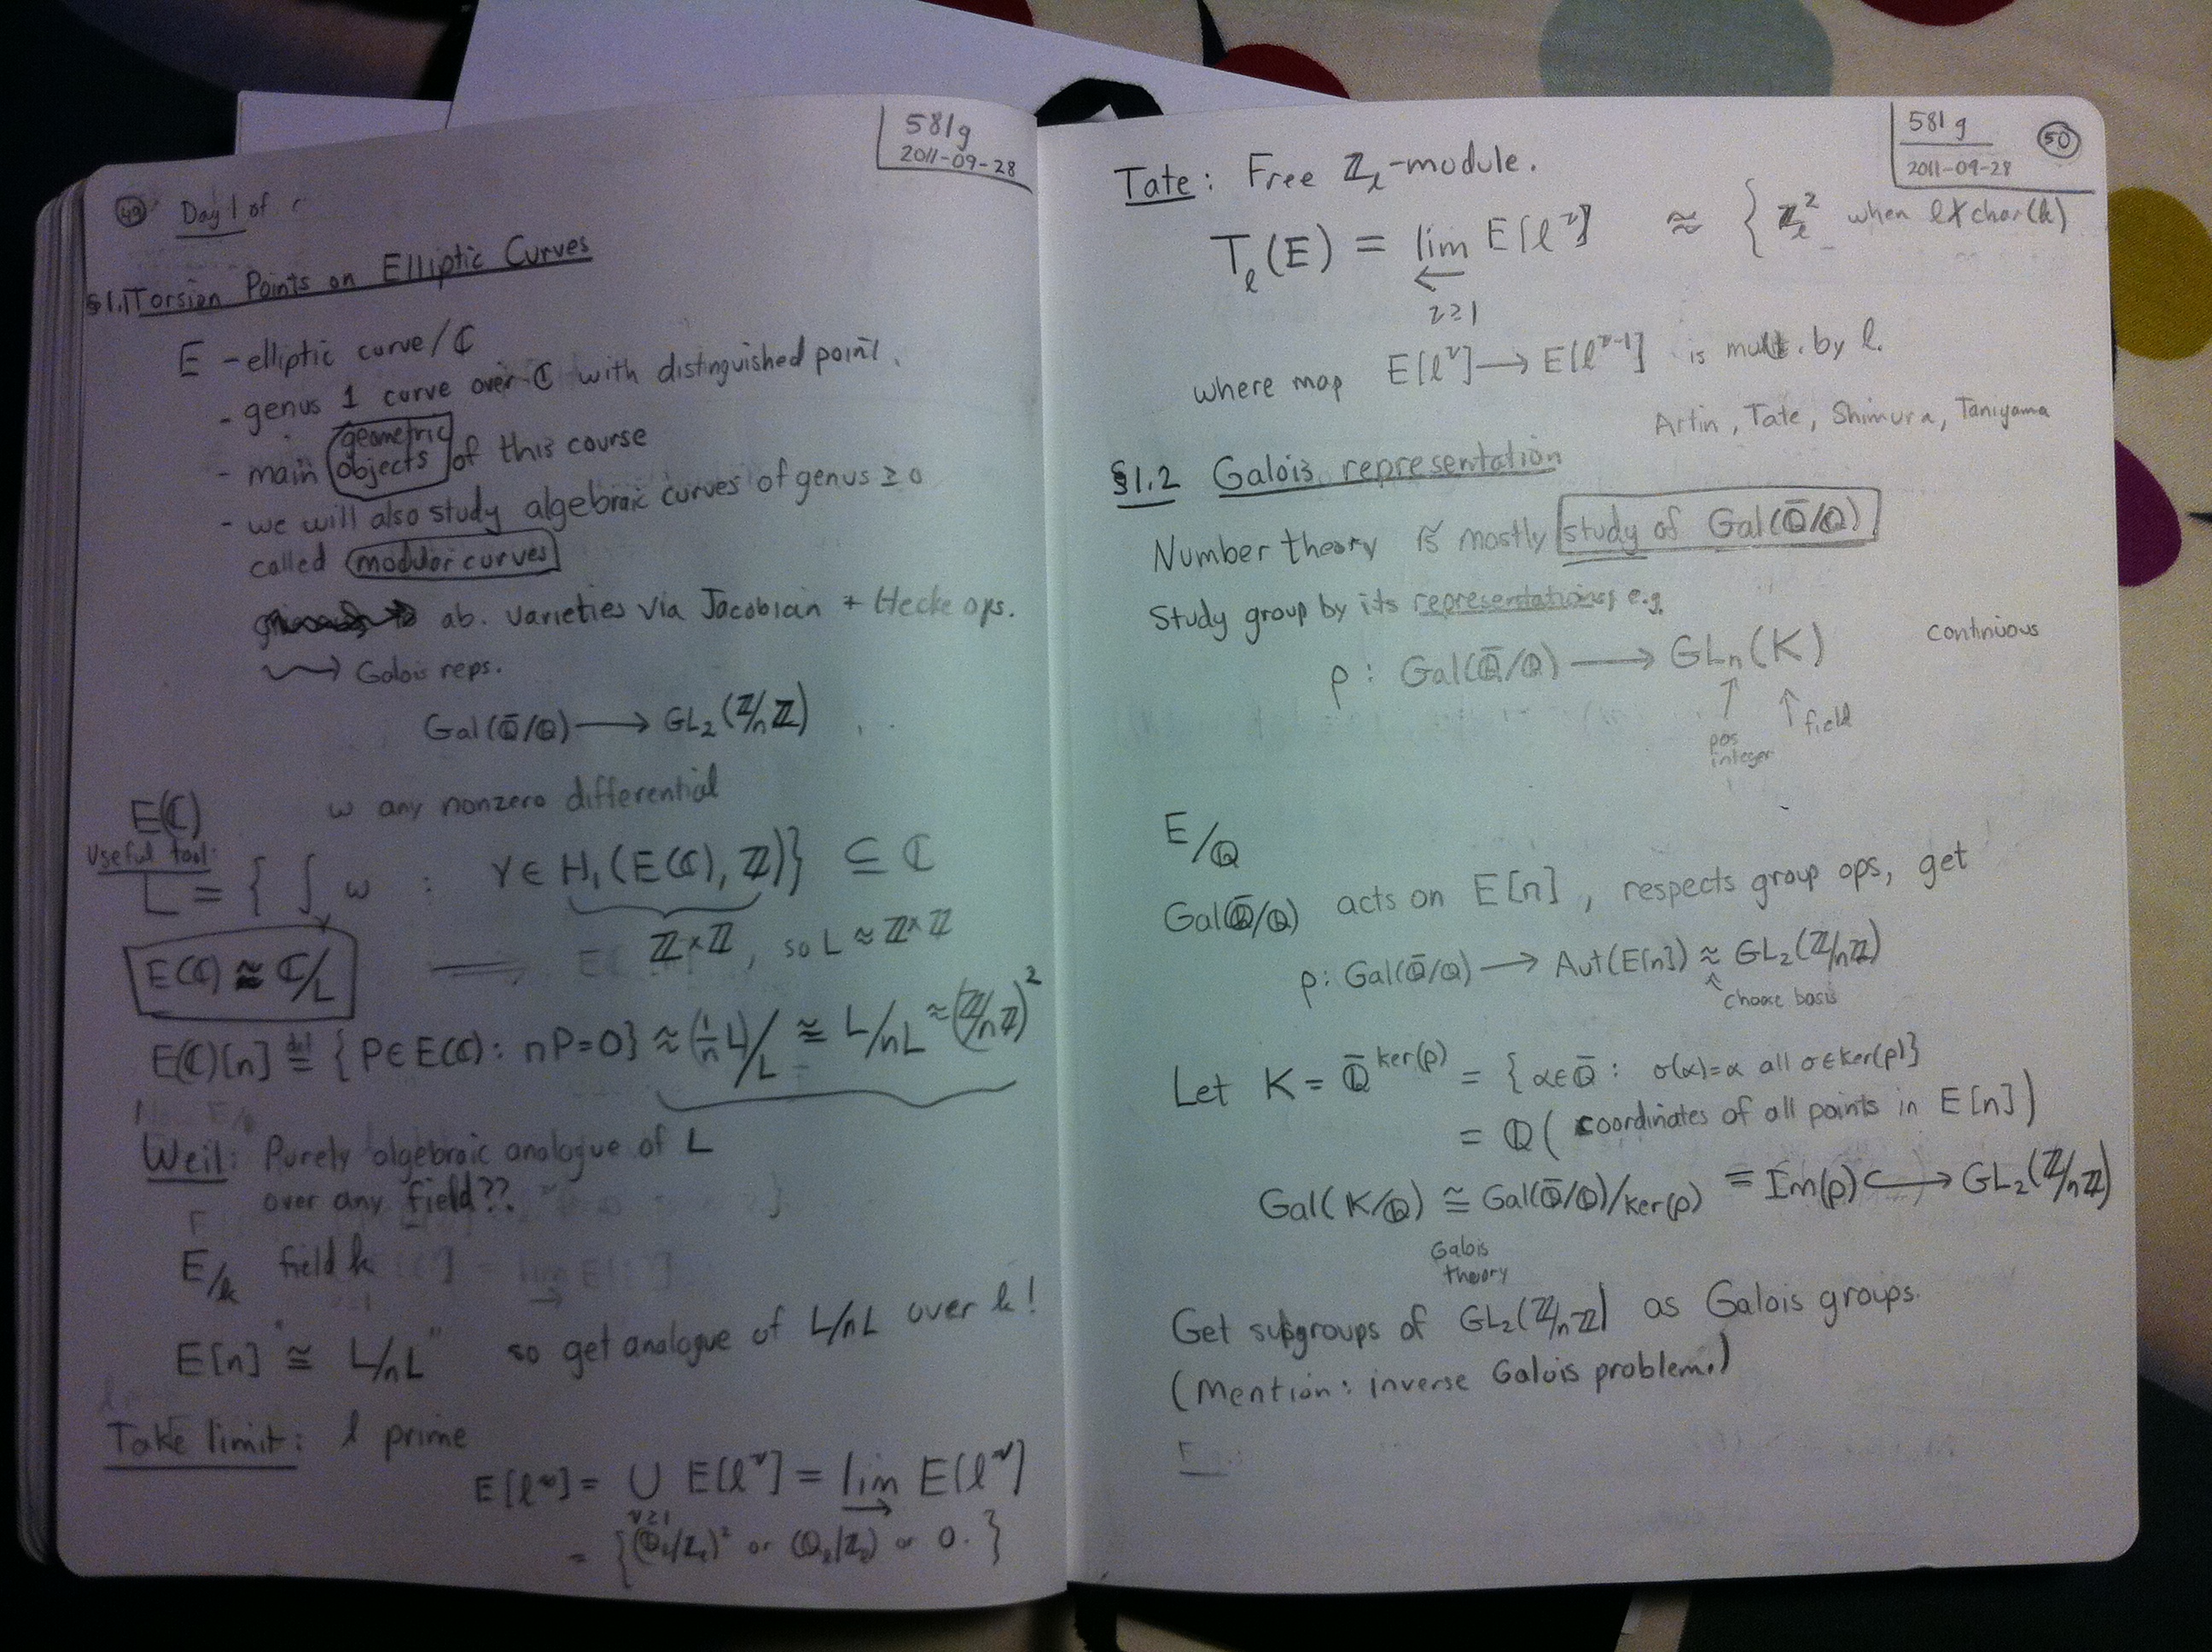 581g
2011-09-28
49 Day 1 of
§1.1 Torsion Points on Elliptic Curves
E - elliptic curve/ℂ
- genus 1 curve over ℂ with distinguished point.
- main geometric objects of this course
- we will also study algebraic curves of genus ≥ 0
called modular curves
ab. varieties via Jacobian + Hecke ops.
⇝ Galois reps.
Gal(ℚ̄/ℚ) ⟶ GL₂(ℤ/nℤ)
E(ℂ) ω any nonzero differential
Useful tool:
L = { ∫_γ ω : γ ∈ H₁(E(ℂ), ℤ)} ⊆ ℂ
ℤ×ℤ, so L ≈ ℤ×ℤ
E(ℂ) ≅ ℂ/L ⟹
E(ℂ)[n] ≝ {P∈E(ℂ): nP=0} ≈ (1/n L)/L ≅ L/nL ≈ (ℤ/nℤ)²
Weil: Purely algebraic analogue of L
over any field??
E/k field k
E[n] "≅ L/nL" so get analogue of L/nL over k!
Take limit: ℓ prime
E[ℓ^∞] = ∪_{ν≥1} E[ℓ^ν] = lim→ E[ℓ^ν]
= {(ℚ_ℓ/ℤ_ℓ)² or (ℚ_ℓ/ℤ_ℓ) or 0.}
581g 50
2011-09-28
Tate: Free ℤ_ℓ-module.
T_ℓ(E) = lim←_{ν≥1} E[ℓ^ν] ≈ { ℤ_ℓ² when ℓ∤char(k)
where map E[ℓ^ν] ⟶ E[ℓ^{ν-1}] is mult. by ℓ.
Artin, Tate, Shimura, Taniyama
§1.2 Galois representation
Number theory is mostly study of Gal(ℚ̄/ℚ)
Study group by its representations e.g.
ρ: Gal(ℚ̄/ℚ) ⟶ GLₙ(K) continuous
↑ ↑ field
pos
integer
E/ℚ
Gal(ℚ̄/ℚ) acts on E[n], respects group ops, get
ρ: Gal(ℚ̄/ℚ) ⟶ Aut(E[n]) ≈ GL₂(ℤ/nℤ)
↑ choose basis
Let K = ℚ̄^{ker(ρ)} = {α∈ℚ̄: σ(α)=α all σ∈ker(ρ)}
= ℚ(coordinates of all points in E[n])
Gal(K/ℚ) ≅ Gal(ℚ̄/ℚ)/ker(ρ) ≅ Im(ρ) ↪ GL₂(ℤ/nℤ)
Galois
theory
Get subgroups of GL₂(ℤ/nℤ) as Galois groups.
(Mention: inverse Galois problem.)